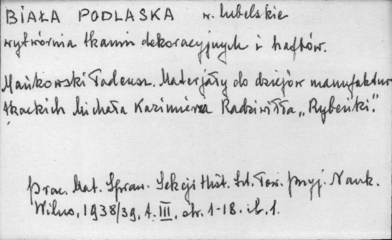 BIAŁA PODLASKA w. lubelskie
wytwórnia tkanin dekoracyjnych i haftów.
Mańkowski Tadeusz. Materjały do dziejów manufaktur
tkackich Michała Kazimierza Radziwiłła „Rybeńki".
Prac. Mat. Spraw. Sekcji Hist. Szt. Tow. Przyj. Nauk.
Wilno, 1938/39, t. III, str. 1-18. il. 1.